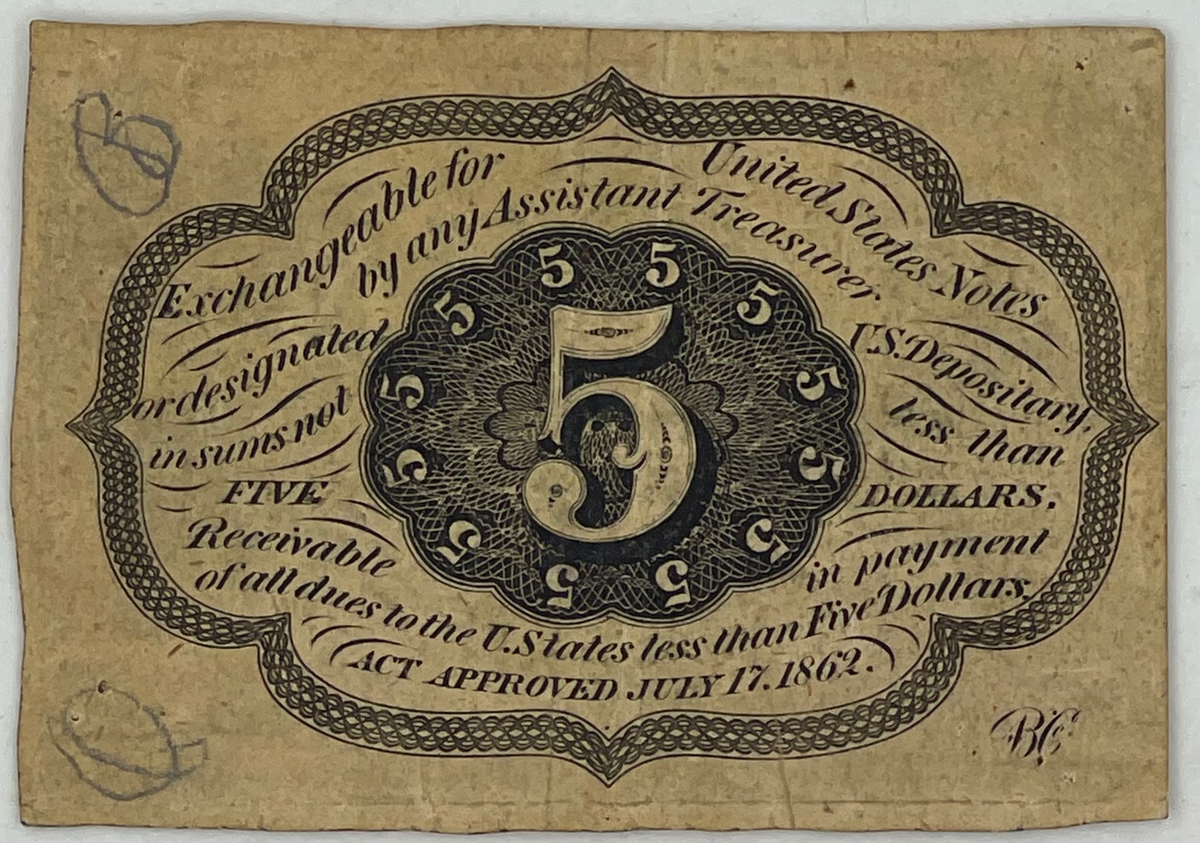 Exchangeable for United States Notes
by any Assistant Treasurer
or designated U.S. Depositary,
in sums not less than
FIVE DOLLARS,
Receivable in payment
of all dues to the U.States less than Five Dollars.
ACT APPROVED JULY 17. 1862.
5
5 5 5 5 5 5 5 5 5 5 5 5